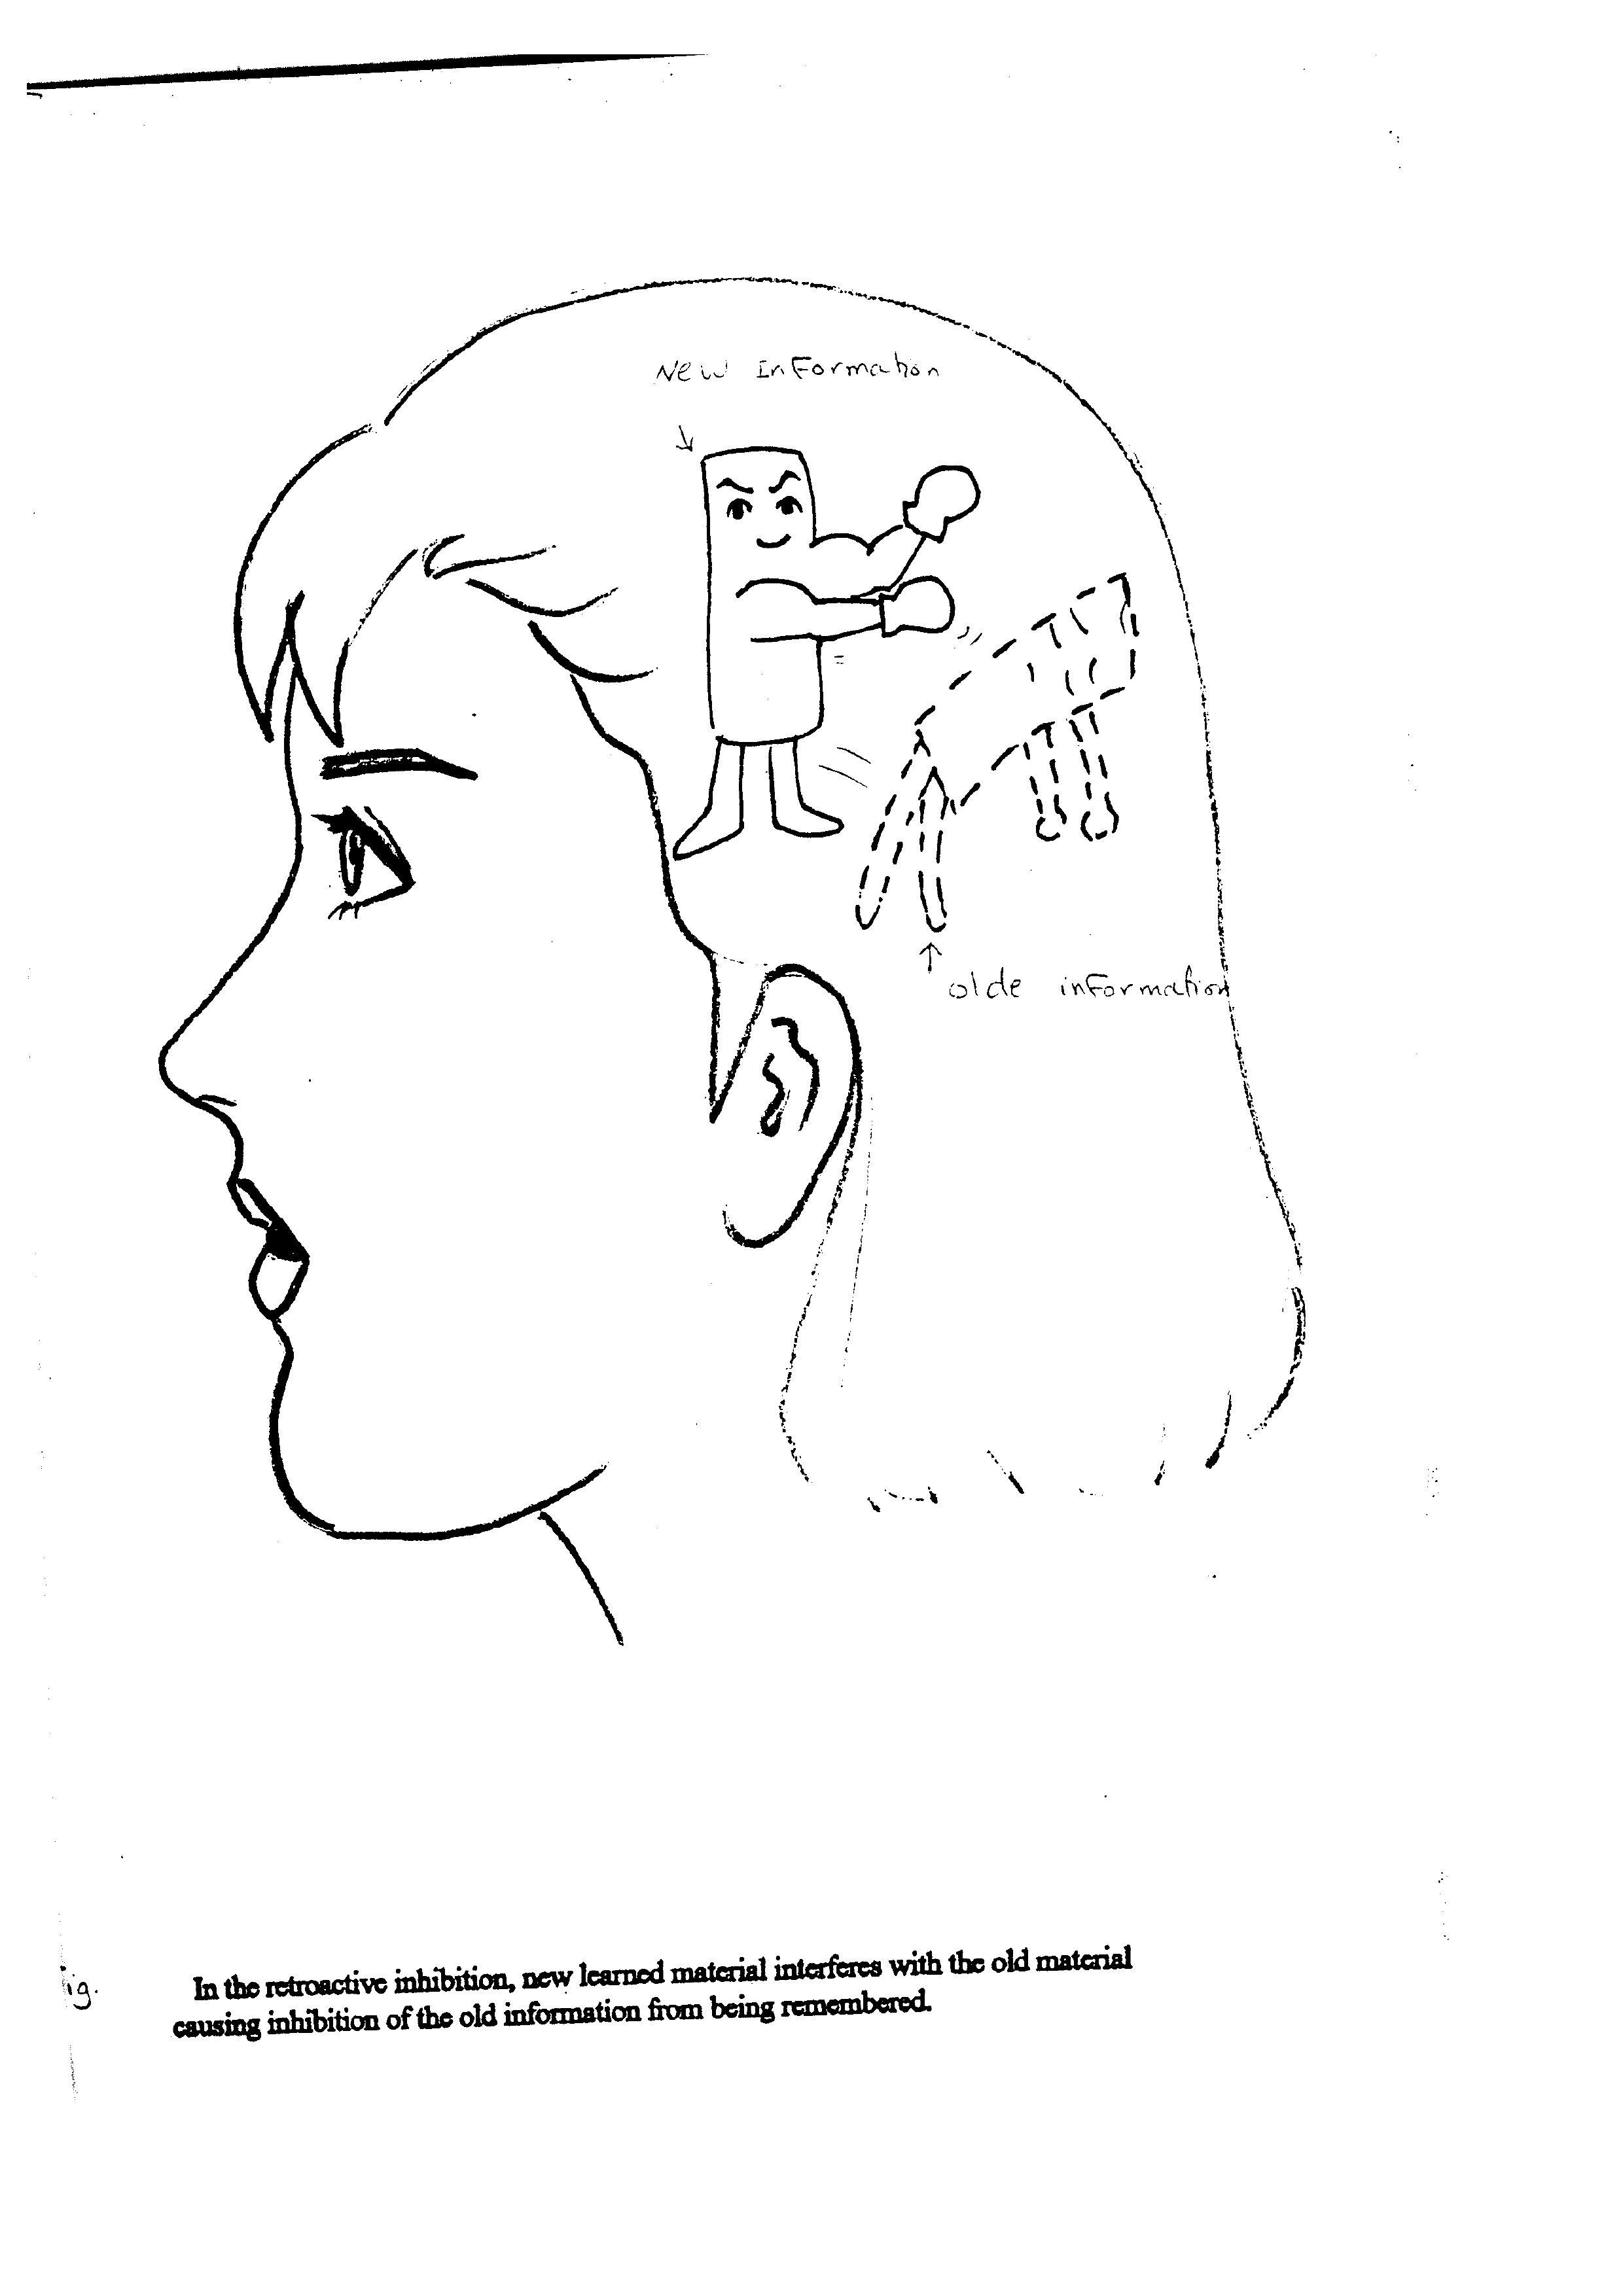 New Information
olde information
ig. In the retroactive inhibition, new learned material interferes with the old material
causing inhibition of the old information from being remembered.